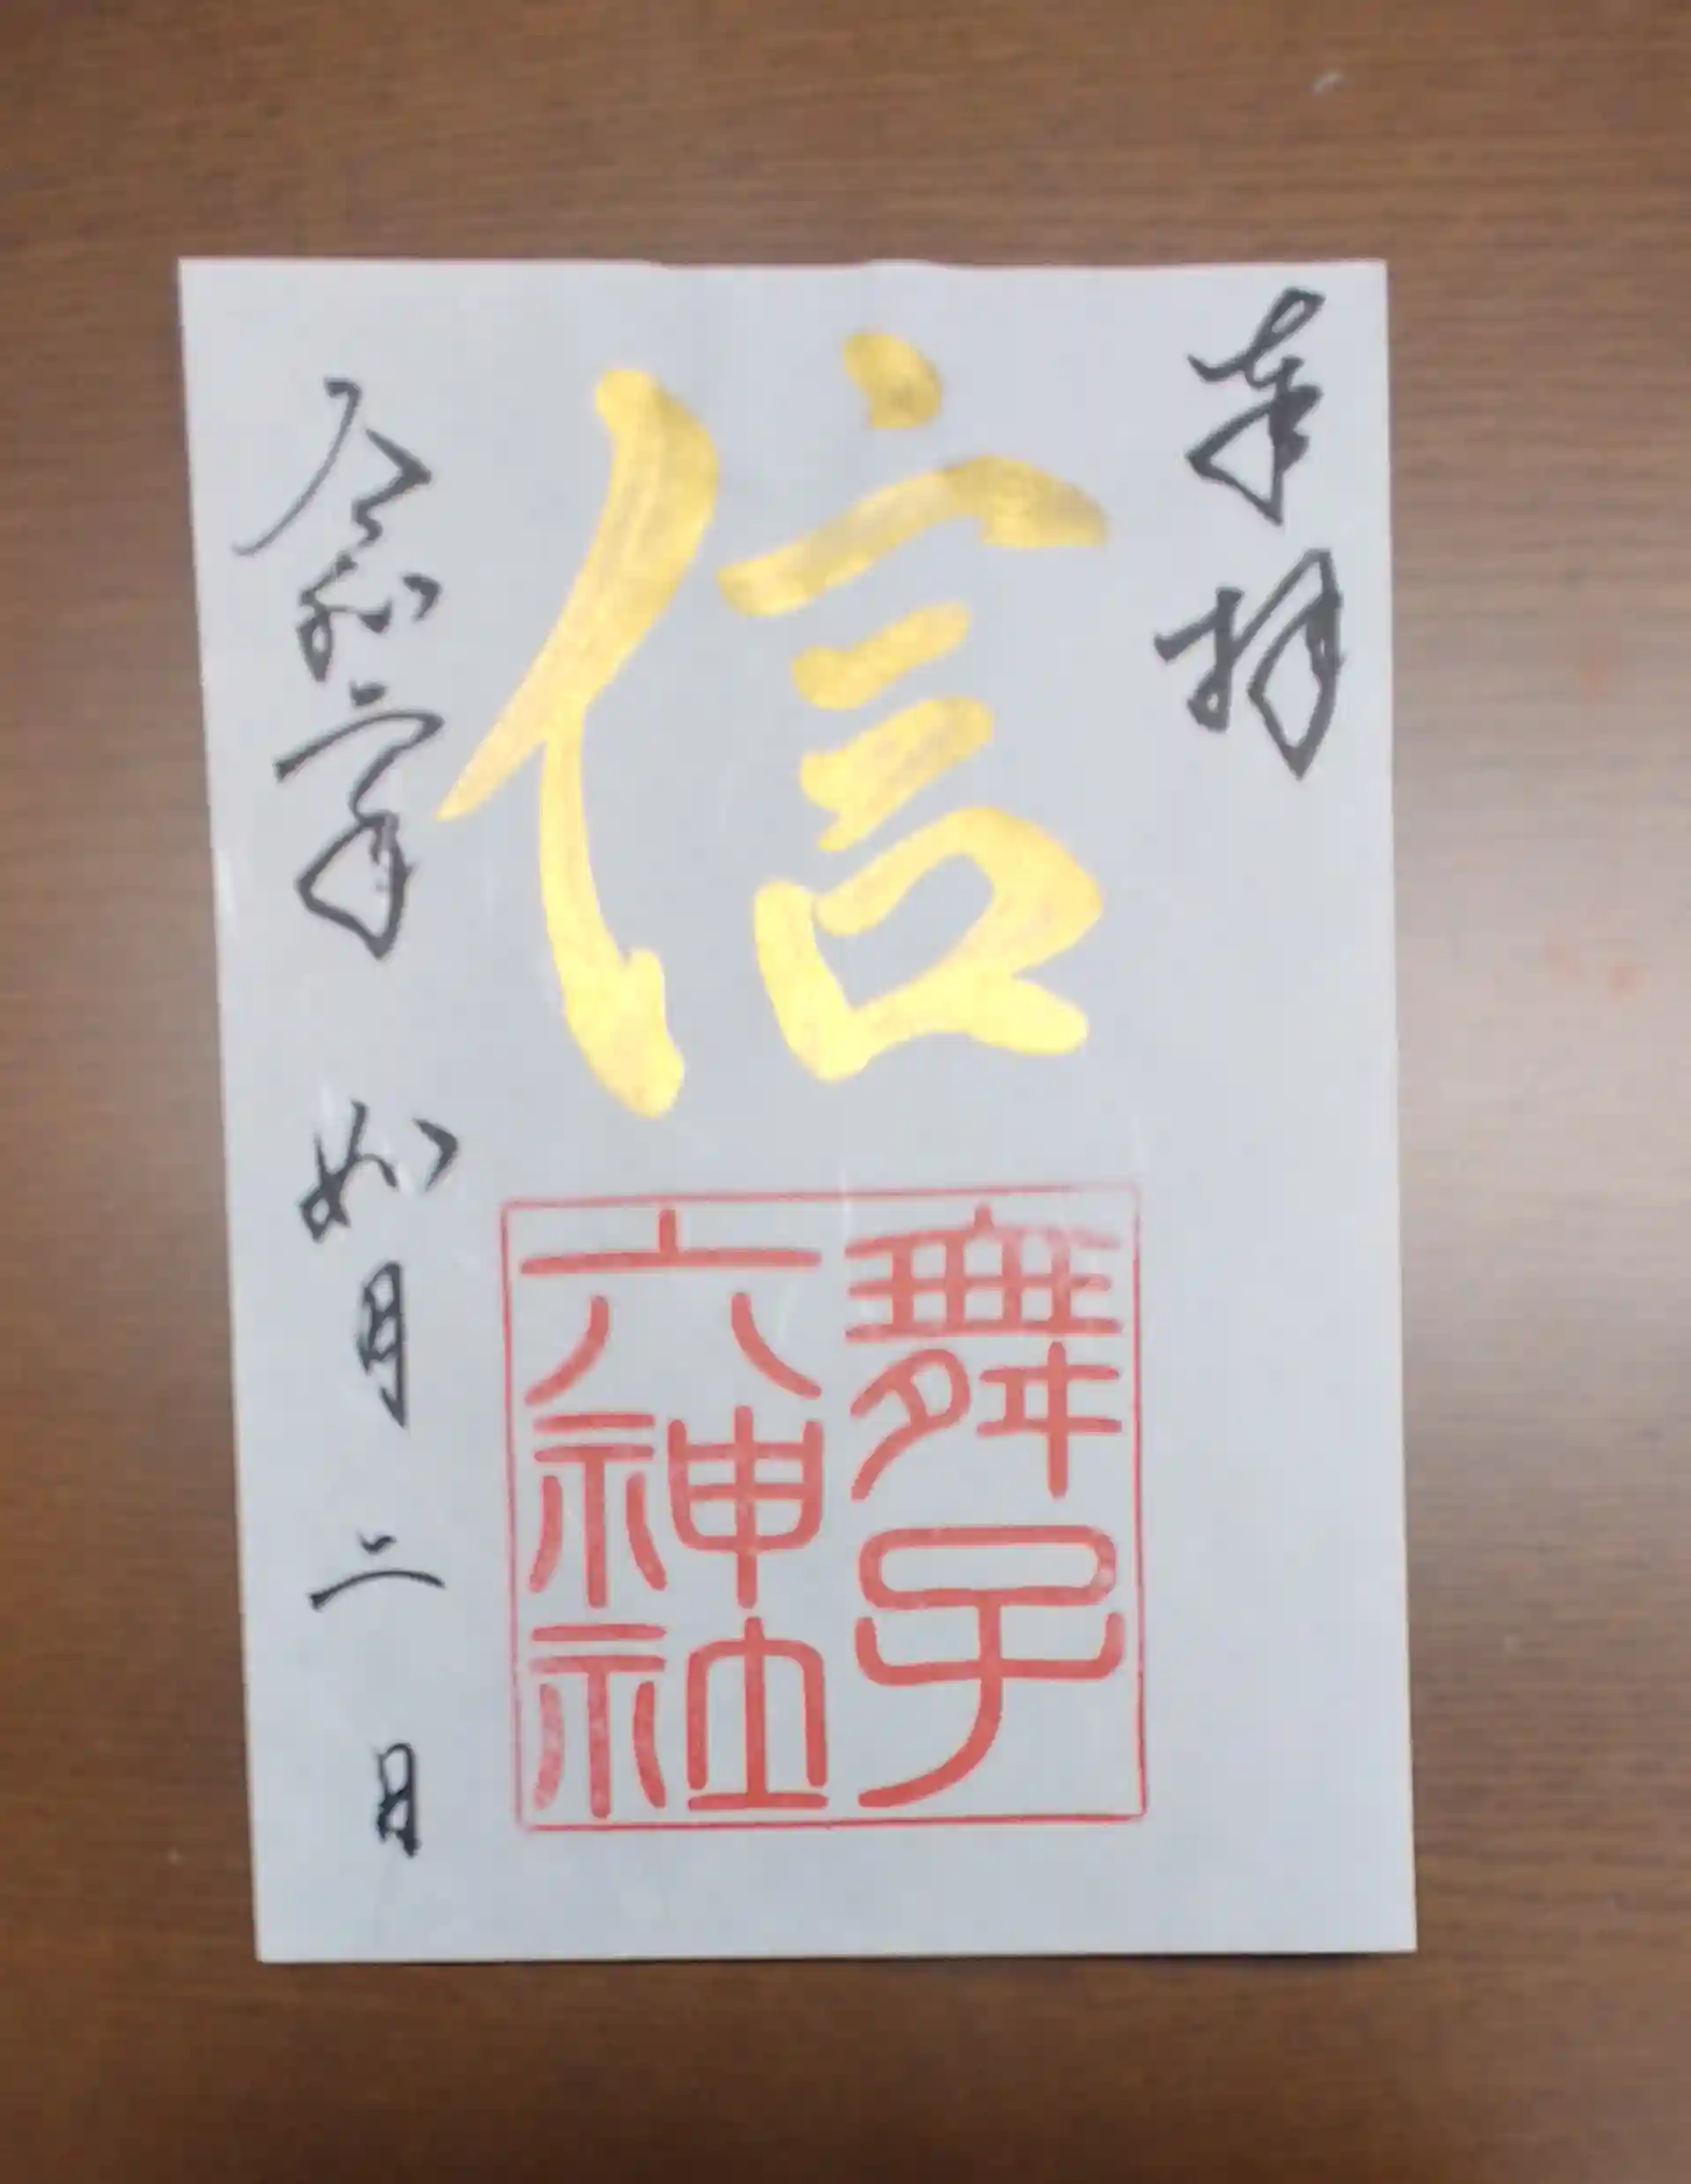 奉拝
信
舞子
六神社
令和二年 如月 二日